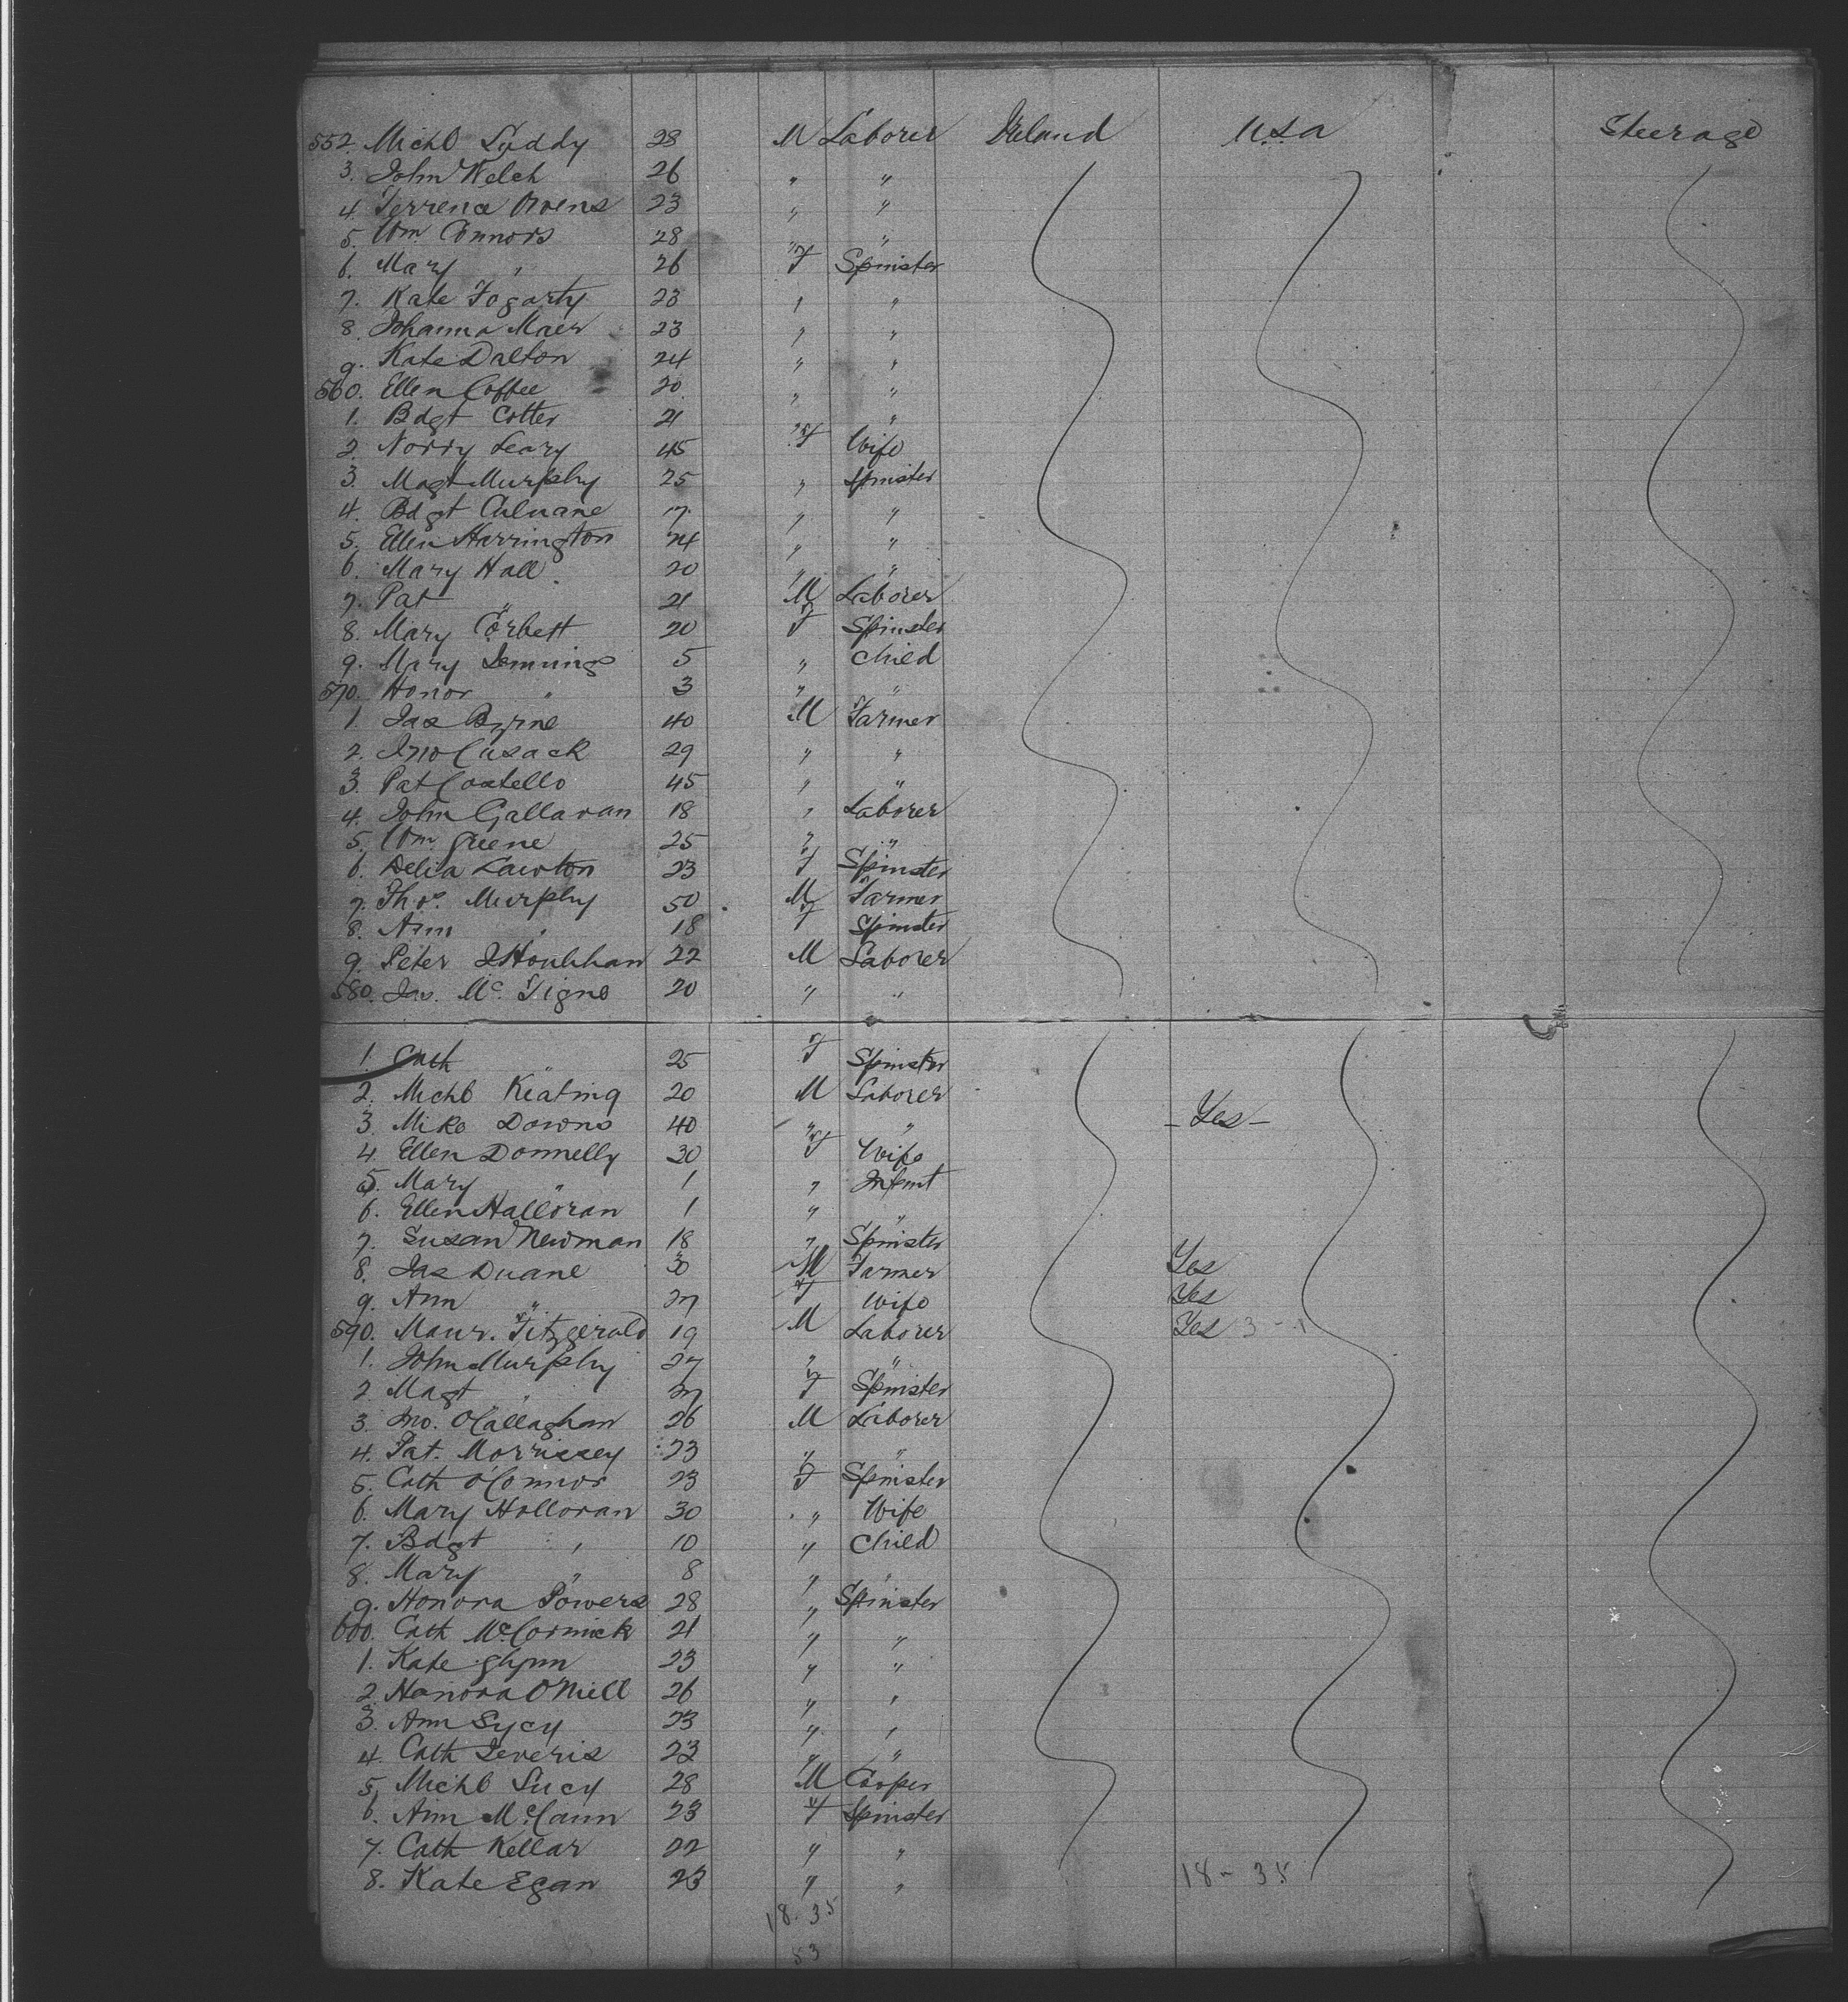 552. Michl Luddy 28 M Laborer Ireland U.S.a Steerage
3. John Welch 26 " "
4. Terrence Owens 23 " "
5. Wm. Connors 28 " "
6. Mary " 26 F Spinster
7. Kate Fogarty 23 " "
8. Johanna Maer 23 " "
9. Kate Dalton 24 " "
560. Ellen Coffee 20 " "
1. Bdgt Cotter 21 " "
2. Norry Leary 45 F Wife
3. Magt Murphy 25 " Spinster
4. Bdgt 17 " "
5. Ellen Harrington 24 " "
6. Mary Hall 20 " "
7. Pat " 21 M Laborer
8. Mary Corbett 20 F Spinster
9. Mary Jennings 5 " Child
570. Honor " 3 " "
1. Jas Byrne 40 M Farmer
2. Jno Cusack 29 " "
3. Pat Costello 45 " "
4. John Gallavan 18 " Laborer
5. Wm. Greene 25 " "
6. Delia Lawton 23 F Spinster
7. Thos. Murphy 50 M Farmer
8. Ann " 18 F Spinster
9. Peter Houlihan 22 M Laborer
580. Jas. Mc. Tigne 20 " "
1. Cath " 25 F Spinster
2. Michl Keating 20 M Laborer
3. Mike Downs 40 " " - Yes -
4. Ellen Donnelly 30 F Wife
5. Mary " 1 " Infant
6. Ellen Halloran 1 " "
7. Susan Newman 18 " Spinster
8. Jas Duane 30 M Farmer Yes
9. Ann " 27 F Wife Yes
590. Maur. Fitzgerald 19 M Laborer Yes 3 - 1
1. John Murphy 27 " "
2 Magt " 27 F Spinster
3. Jno. O'Callaghan 26 M Laborer
4. Pat. Morrissey 23 " "
5. Cath O'Connor 23 F Spinster
6. Mary Holloran 30 " Wife
7. Bdgt " 10 " Child
8. Mary " 8 " "
9. Honora Powers 28 " Spinster
600. Cath McCormick 21 " "
1. Kate Glynn 23 " "
2. Hanora O'Niell 26 " "
3. Ann Sycy 23 " "
4. Cath Severis 23 " "
5. Michl Lucy 28 M Cooper
6. Ann McCann 23 F Spinster
7. Cath Kellar 22 " "
8. Kate Egan 23 " " 18 - 35
18. 35
53